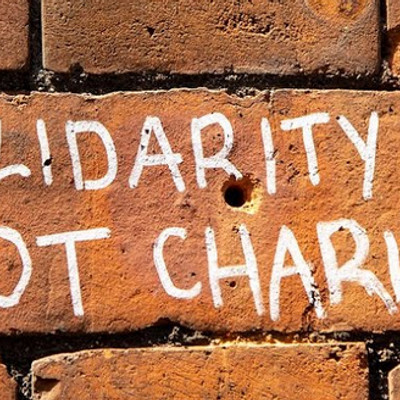 LIDARITY
OT CHARI